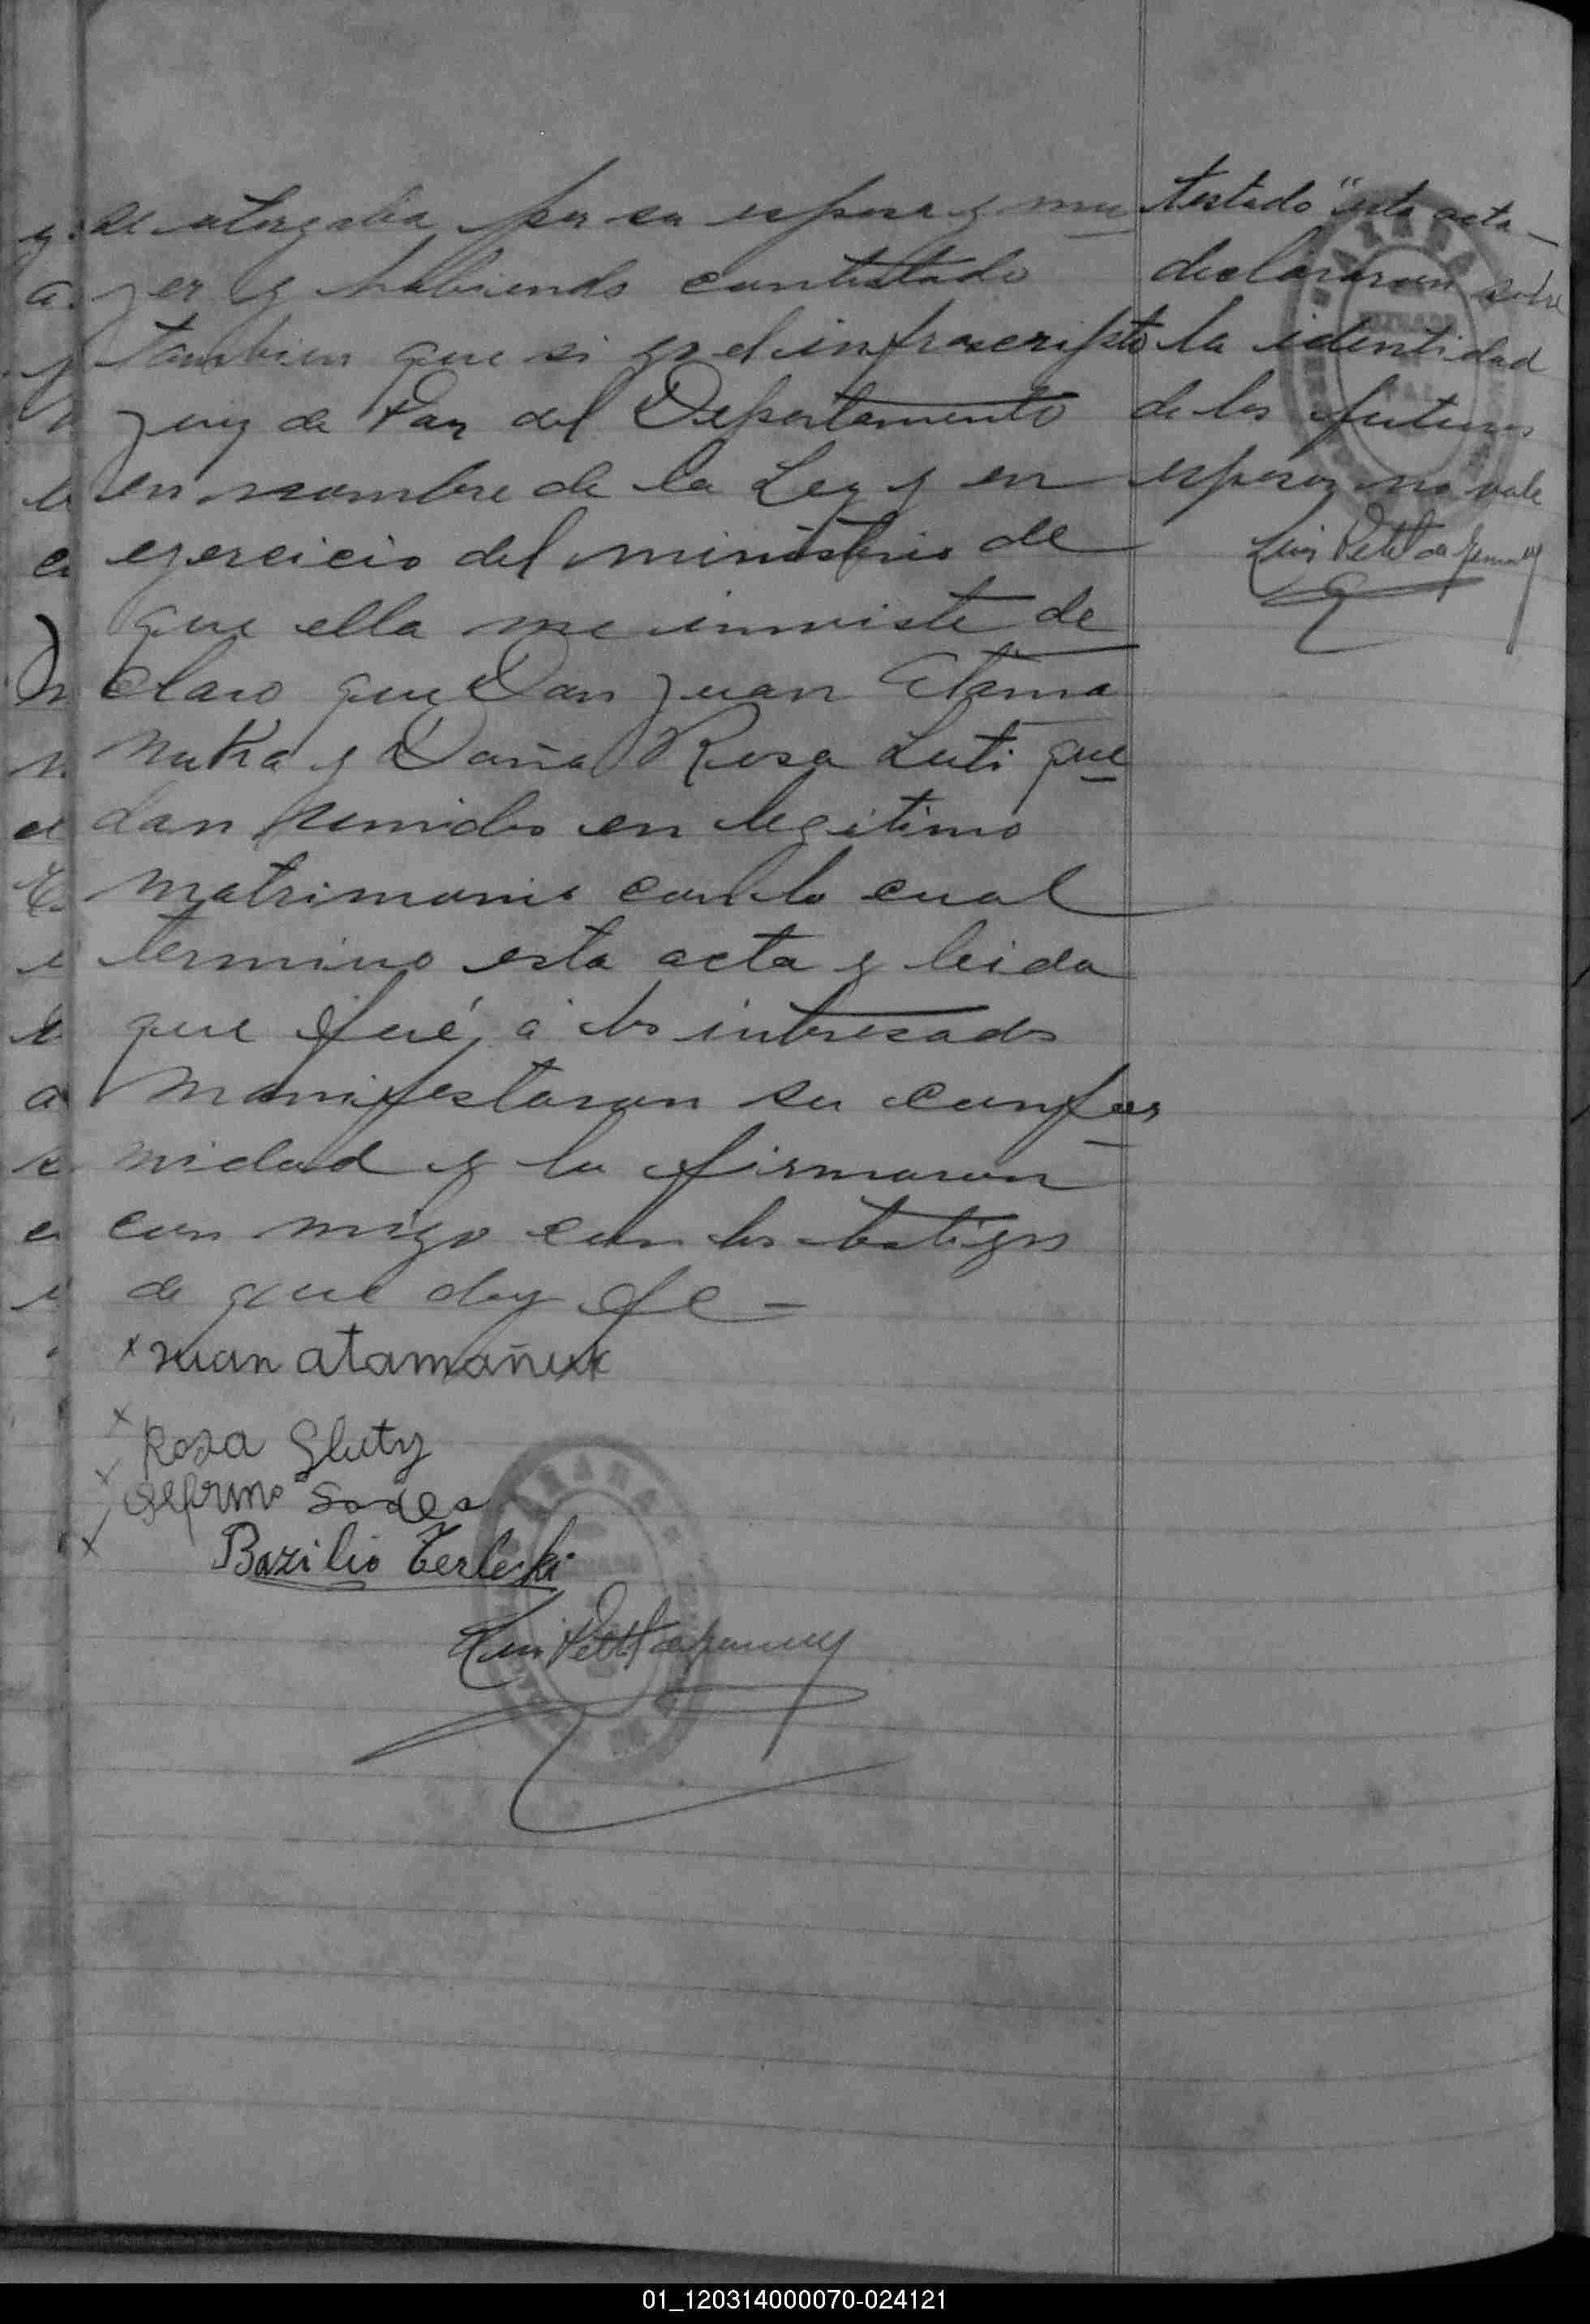 se otorgaba por su esposa y mu
jer y habiendo contestado
tambien que si yo el infrascripto
Juez de Paz del Departamento
en nombre de la Ley y en
ejercicio del ministerio de
que ella me inviste de
claro que Don Juan Atama
nuka y Doña Rosa Luti que
dan unidos en legitimo
matrimonio con lo cual
termino esta acta y leida
que fué á los interesados
manifestaron su confor
midad y la firmaron
con migo con los testigos
de que doy fe -
x Juan atamañuk
x Rosa Gluty
x
x Bazilio Terleski
Luis Petit de
testado "esta acta -
declararon sobre
la identidad
de los futuros
esposos no vale
Luis Petit de
AZARA
AZARA
01_120314000070-024121